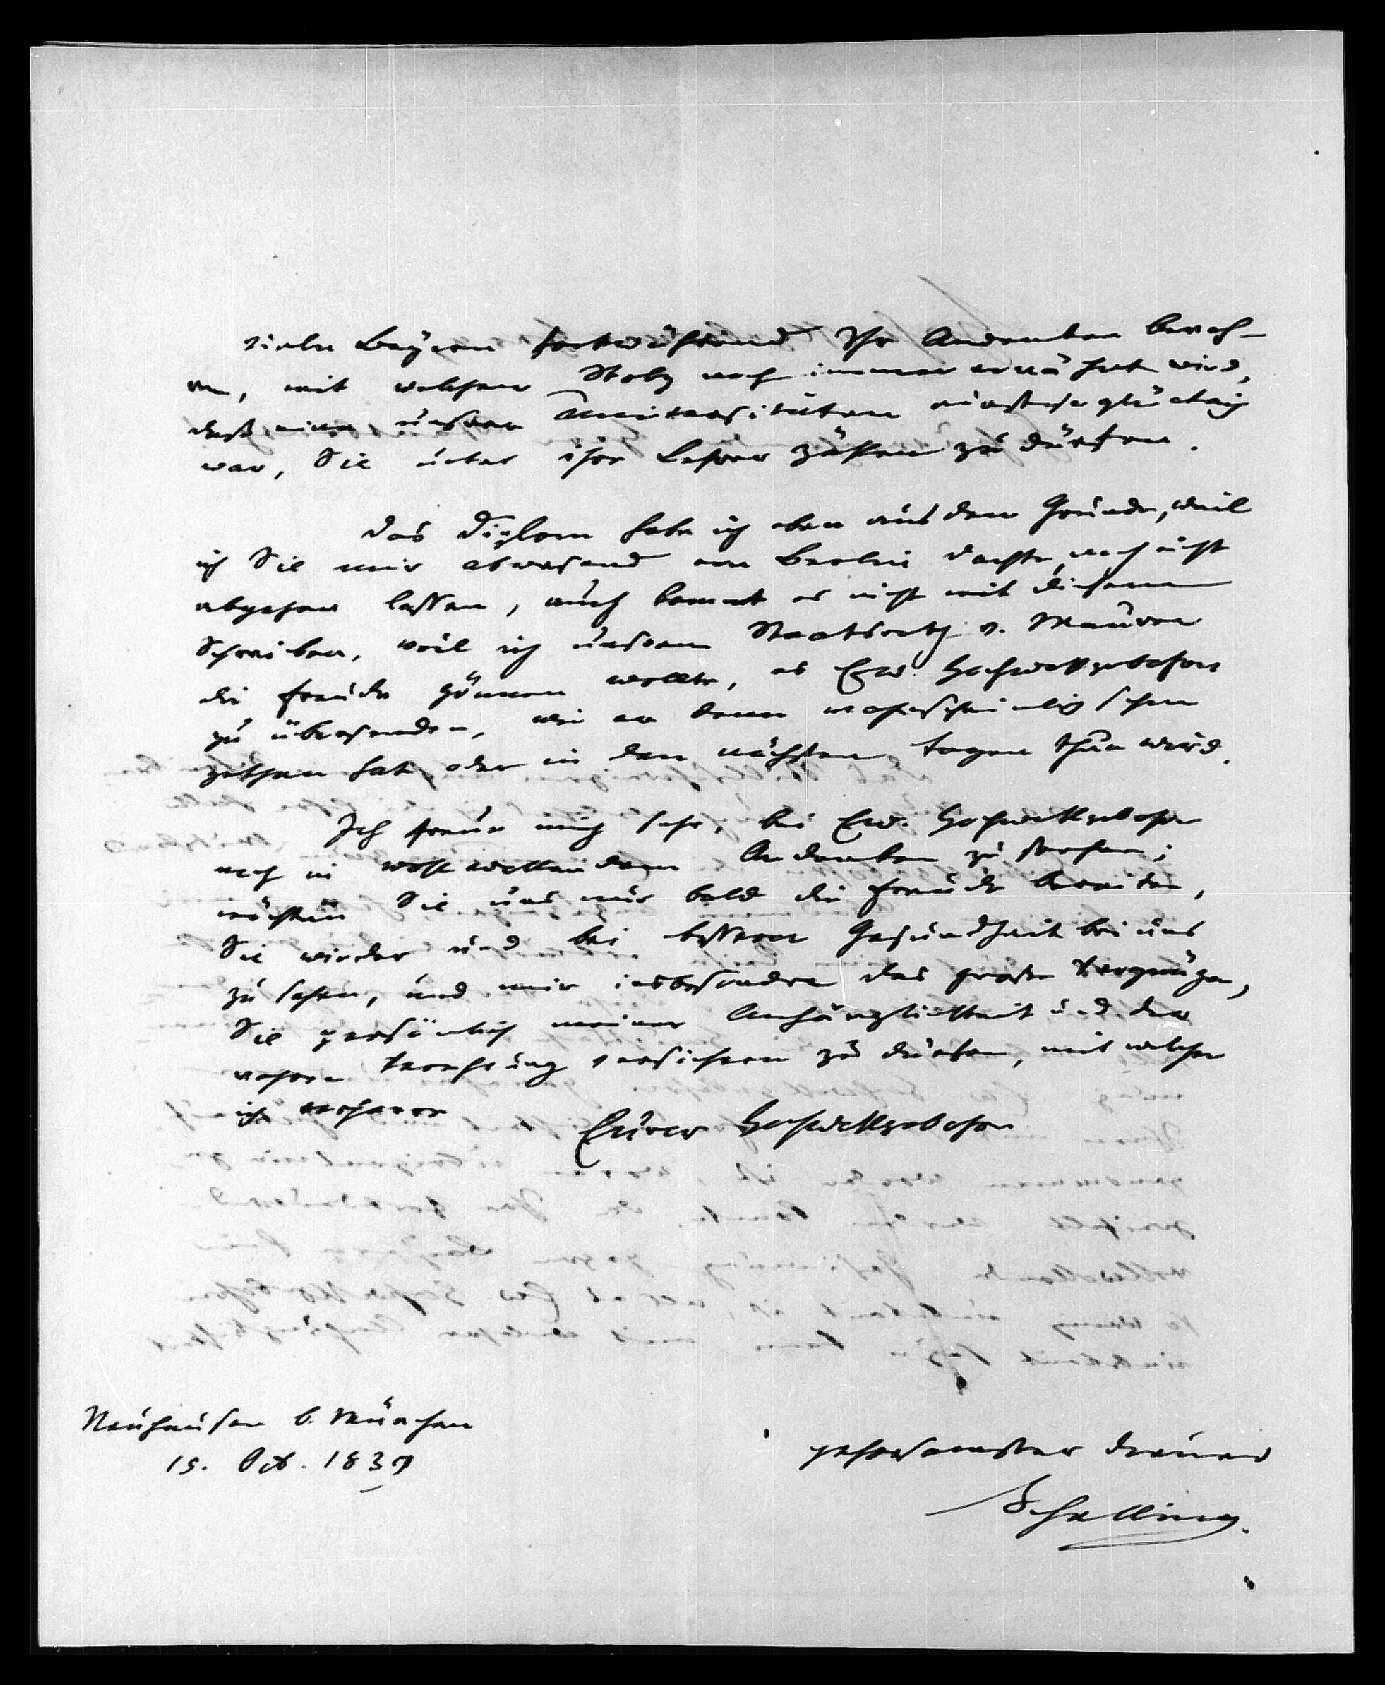 vieler Bayern fortwährend Ihr Andenken bewah-
ren, mit welchem Stolz noch immer erwähnt wird,
daß eine unserer Universitäten einst so glücklich
war, Sie unter ihre Lehrer zählen zu dürfen.
Das Diplom habe ich eben aus dem Grunde, weil
ich Sie mir abwesend von Berlin dachte, noch nicht
abgehen lassen, auch kommt es nicht mit diesem
Schreiben, weil ich unserm Staatsrath v. Maurer
die Freude gönnen wollte, es Ew. Hochwohlgeboren
zu übersenden, wie er denn wahrscheinlich schon
gethan hat oder in den nächsten Tagen thun wird.
Ich freue mich sehr, bei Ew. Hochwohlgeboren
noch in wohlwollendem Andenken zu stehen;
möchten Sie uns nur bald die Freude bereiten,
Sie wieder und bei besserer Gesundheit bei uns
zu sehen, und mir insbesondre das große Vergnügen,
Sie persönlich meiner Anhänglichkeit und der
wahren Verehrung versichern zu dürfen, mit welcher
ich verharre
Eurer Hochwohlgeboren
Neuhausen b. München
15. Oct. 1837
gehorsamster Diener
Schelling.